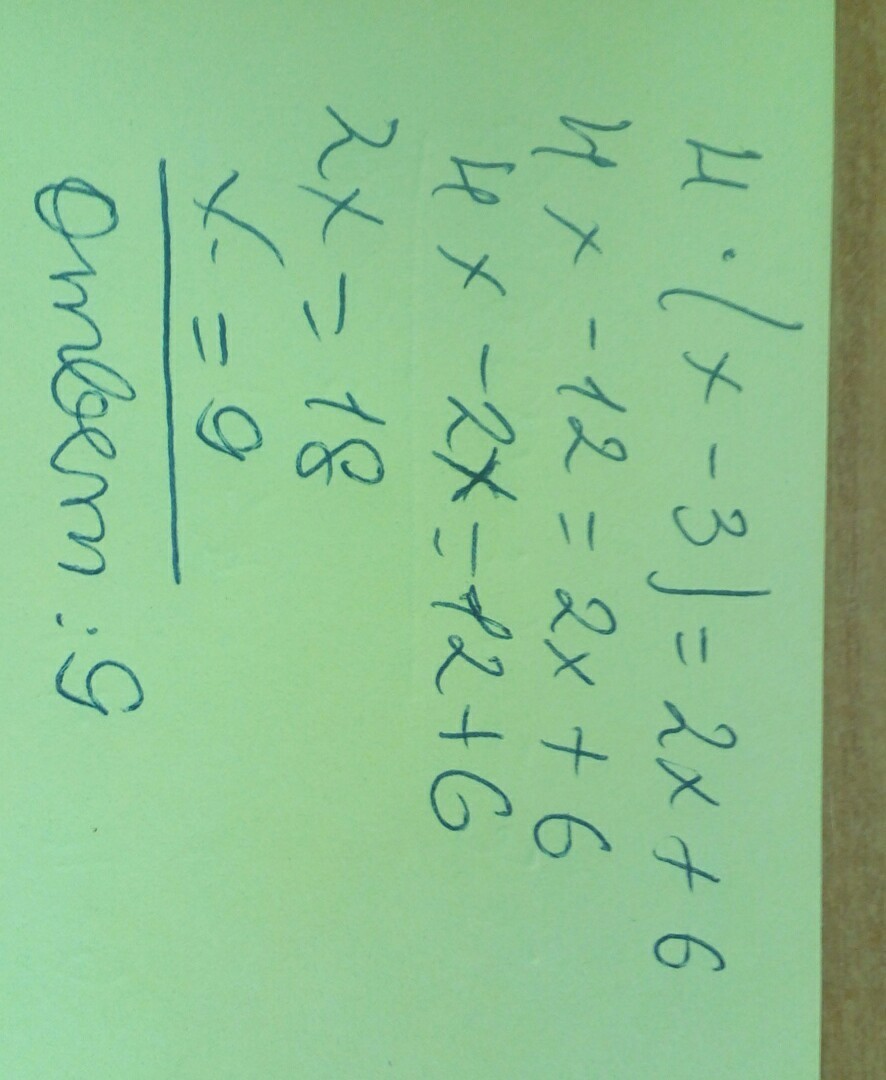 4·(x-3)=2x+6
4x-12=2x+6
4x-2x=-12+6
2x=18
x=9
Ответ:9